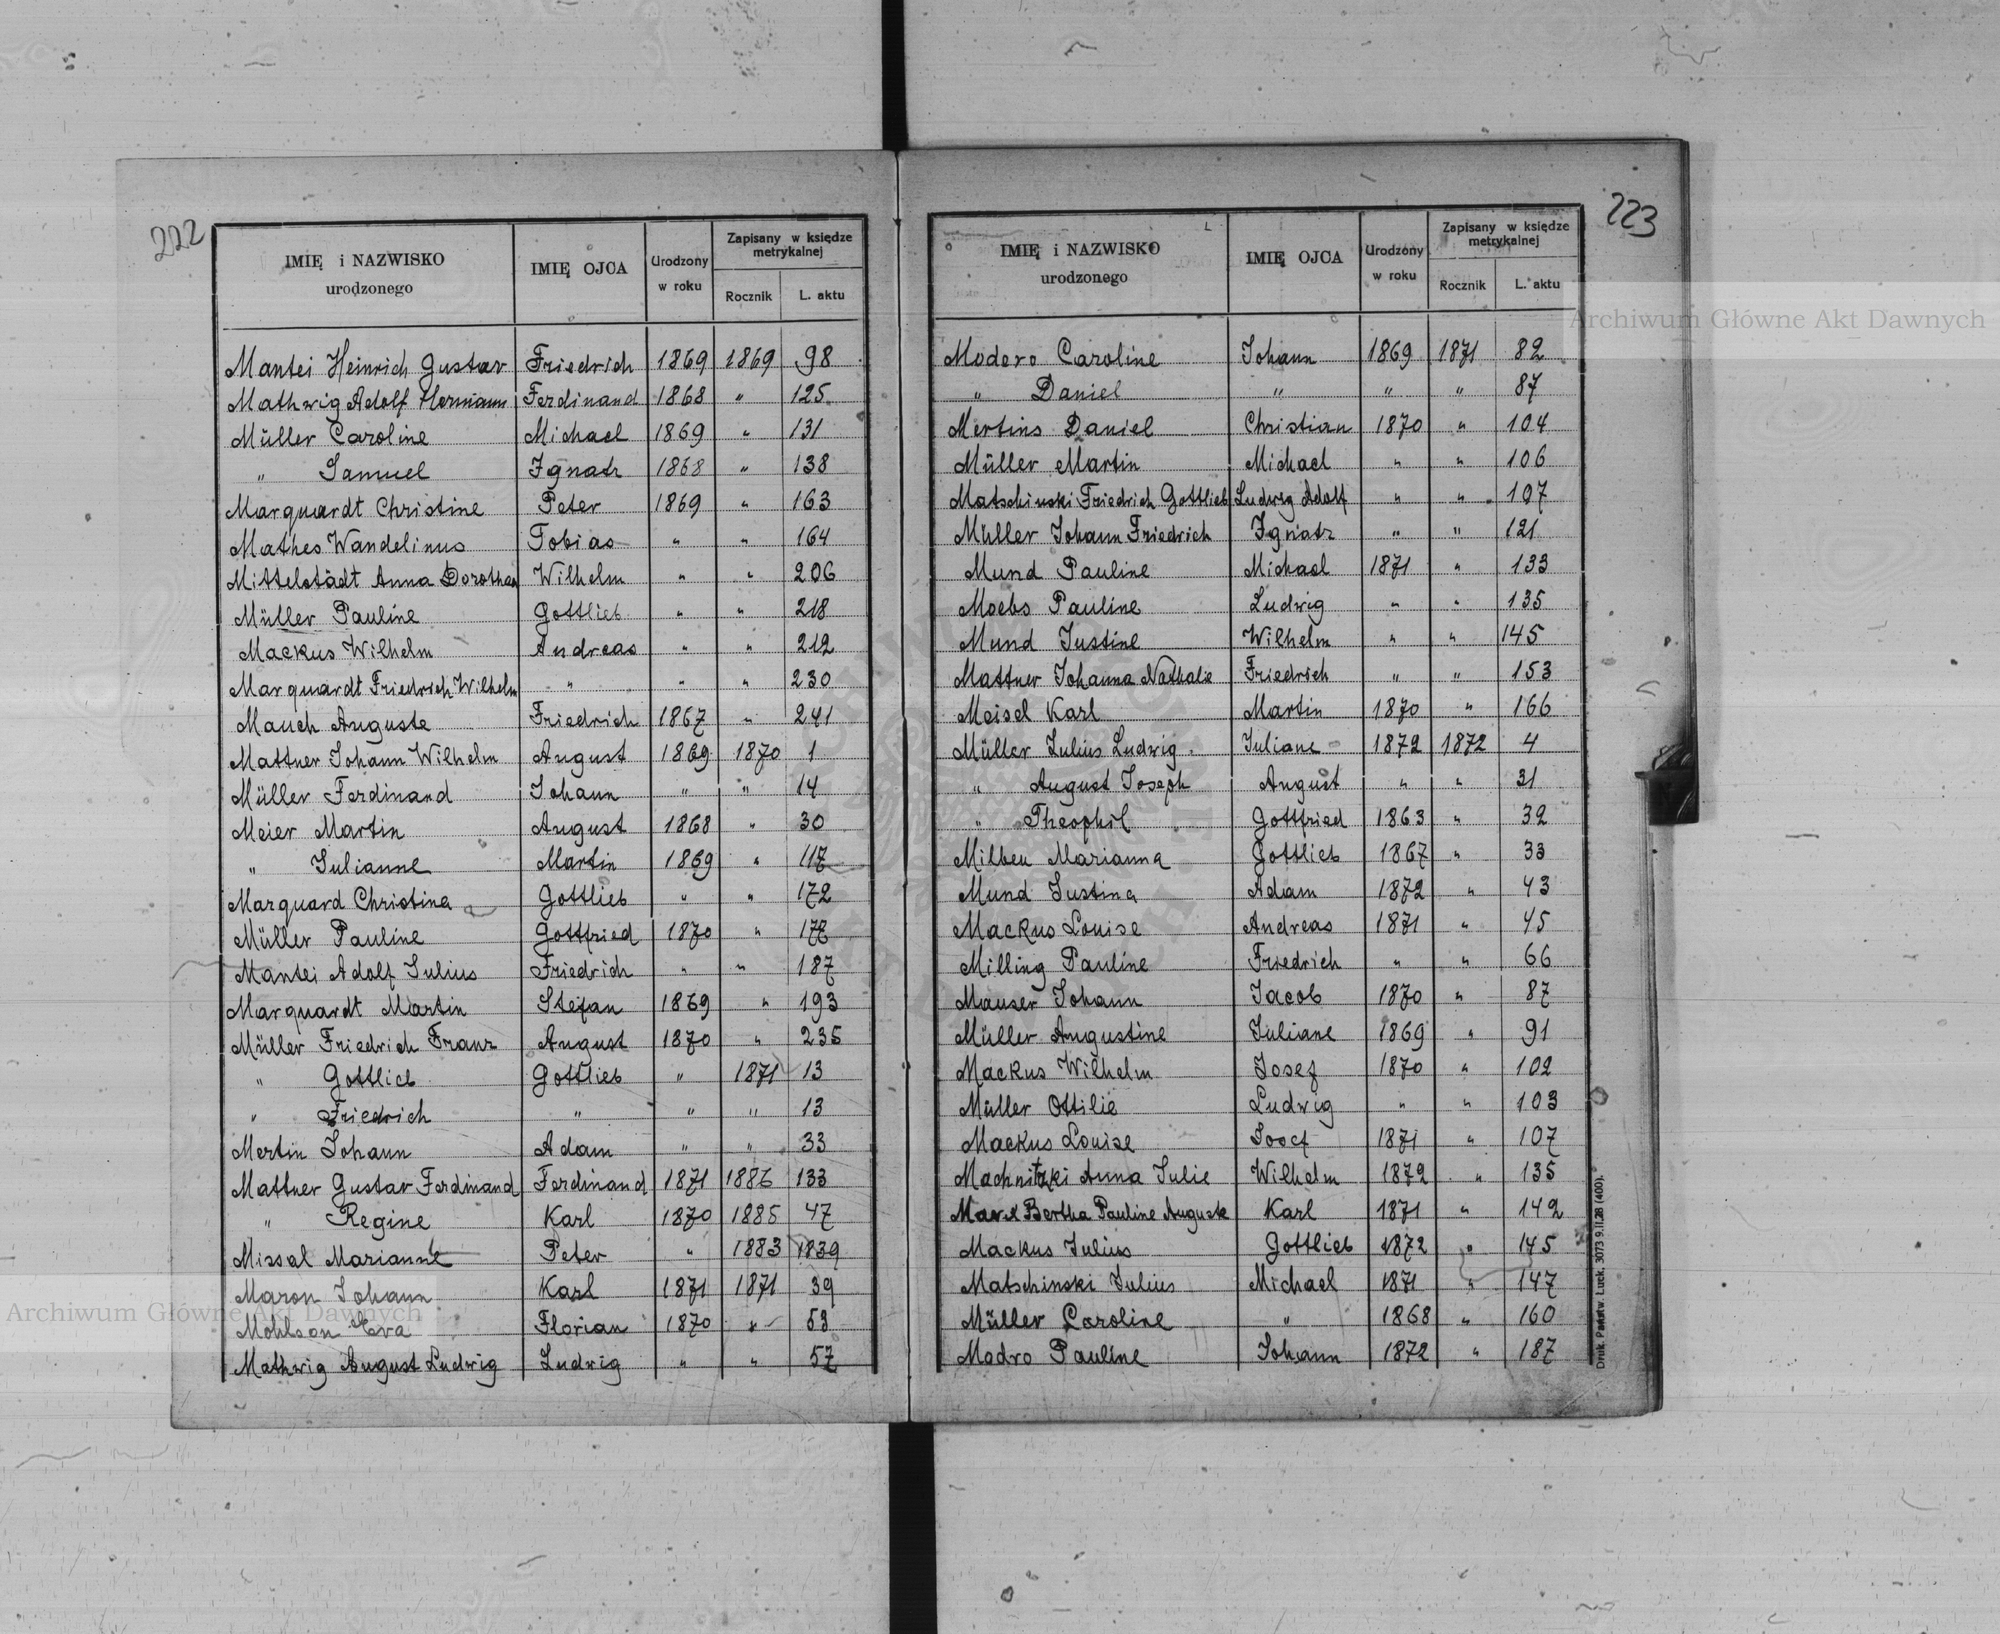 222
IMIĘ i NAZWISKO urodzonego | IMIĘ OJCA | Urodzony w roku | Zapisany w księdze metrykalnej | Rocznik | L. aktu
Mantei Heinrich Gustav Friedrich 1869 1869 98
Mathwig Adolf Hermann Ferdinand 1868 " 125
Müller Caroline Michael 1869 " 131
" Samuel Ignatz 1868 " 138
Marquardt Christine Peter 1869 " 163
Mathes Wandelinus Tobias " " 164
Mittelstädt Anna Dorothea Wilhelm " " 206
Müller Pauline Gottlieb " " 218
Mackus Wilhelm Andreas " " 212
Marquardt Friedrich Wilhelm " " " 230
Mauch Auguste Friedrich 1867 " 241
Mattner Johann Wilhelm August 1869 1870 1
Müller Ferdinand Johann " " 14
Meier Martin August 1868 " 30
" Julianne Martin 1869 " 117
Marquard Christina Gottlieb " " 172
Müller Pauline Gottfried 1870 "
Mantei Adolf Julius Friedrich " " 187
Marquardt Martin Stefan 1869 " 193
Müller Friedrich Franz August 1870 " 235
" Gottlieb Gottlieb " 1871 13
" Friedrich " " " 13
Mertin Johann Adam " " 33
Mattner Gustav Ferdinand Ferdinand 1871 1886 133
" Regine Karl 1870 1885 47
Missal Marianne Peter " 1883 1839
Maron Johann Karl 1871 1871 39
Mohlson Eva Florian 1870 " 53
Mathwig August Ludwig Ludwig " " 57
223
IMIĘ i NAZWISKO urodzonego | IMIĘ OJCA | Urodzony w roku | Zapisany w księdze metrykalnej | Rocznik | L. aktu
Modero Caroline Johann 1869 1871 82
" Daniel " " " 87
Mertins Daniel Christian 1870 " 104
Müller Martin Michael " " 106
Matschinski Friedrich Gottlieb Ludwig Adolf " " 107
Müller Johann Friedrich Ignatz " " 121
Mund Pauline Michael 1871 " 133
Moebs Pauline Ludwig " " 135
Mund Justine Wilhelm " " 145
Mattner Johanna Nathalie Friedrich " " 153
Meisel Karl Martin 1870 " 166
Müller Julius Ludwig Juliane 1872 1872 4
" August Joseph August " " 31
" Theophil Gottfried 1863 " 32
Milbeu Marianna Gottlieb 1867 " 33
Mund Justina Adam 1872 " 43
Mackus Louise Andreas 1871 " 45
Milling Pauline Friedrich " " 66
Mauser Johann Jacob 1870 " 87
Müller Augustine Juliane 1869 " 91
Mackus Wilhelm Josef 1870 " 102
Müller Ottilie Ludwig " " 103
Mackus Louise Josef 1871 " 107
Machnitzki Anna Julie Wilhelm 1872 " 135
Marx Bertha Pauline Auguste Karl 1871 " 142
Mackus Julius Gottlieb 1872 " 145
Matschinski Julius Michael 1871 " 147
Müller Caroline " 1868 " 160
Modro Pauline Johann 1872 " 187
Druk. Państw. Łuck. 3073 9.II.28 (400).
Archiwum Główne Akt Dawnych
Archiwum Główne Akt Dawnych